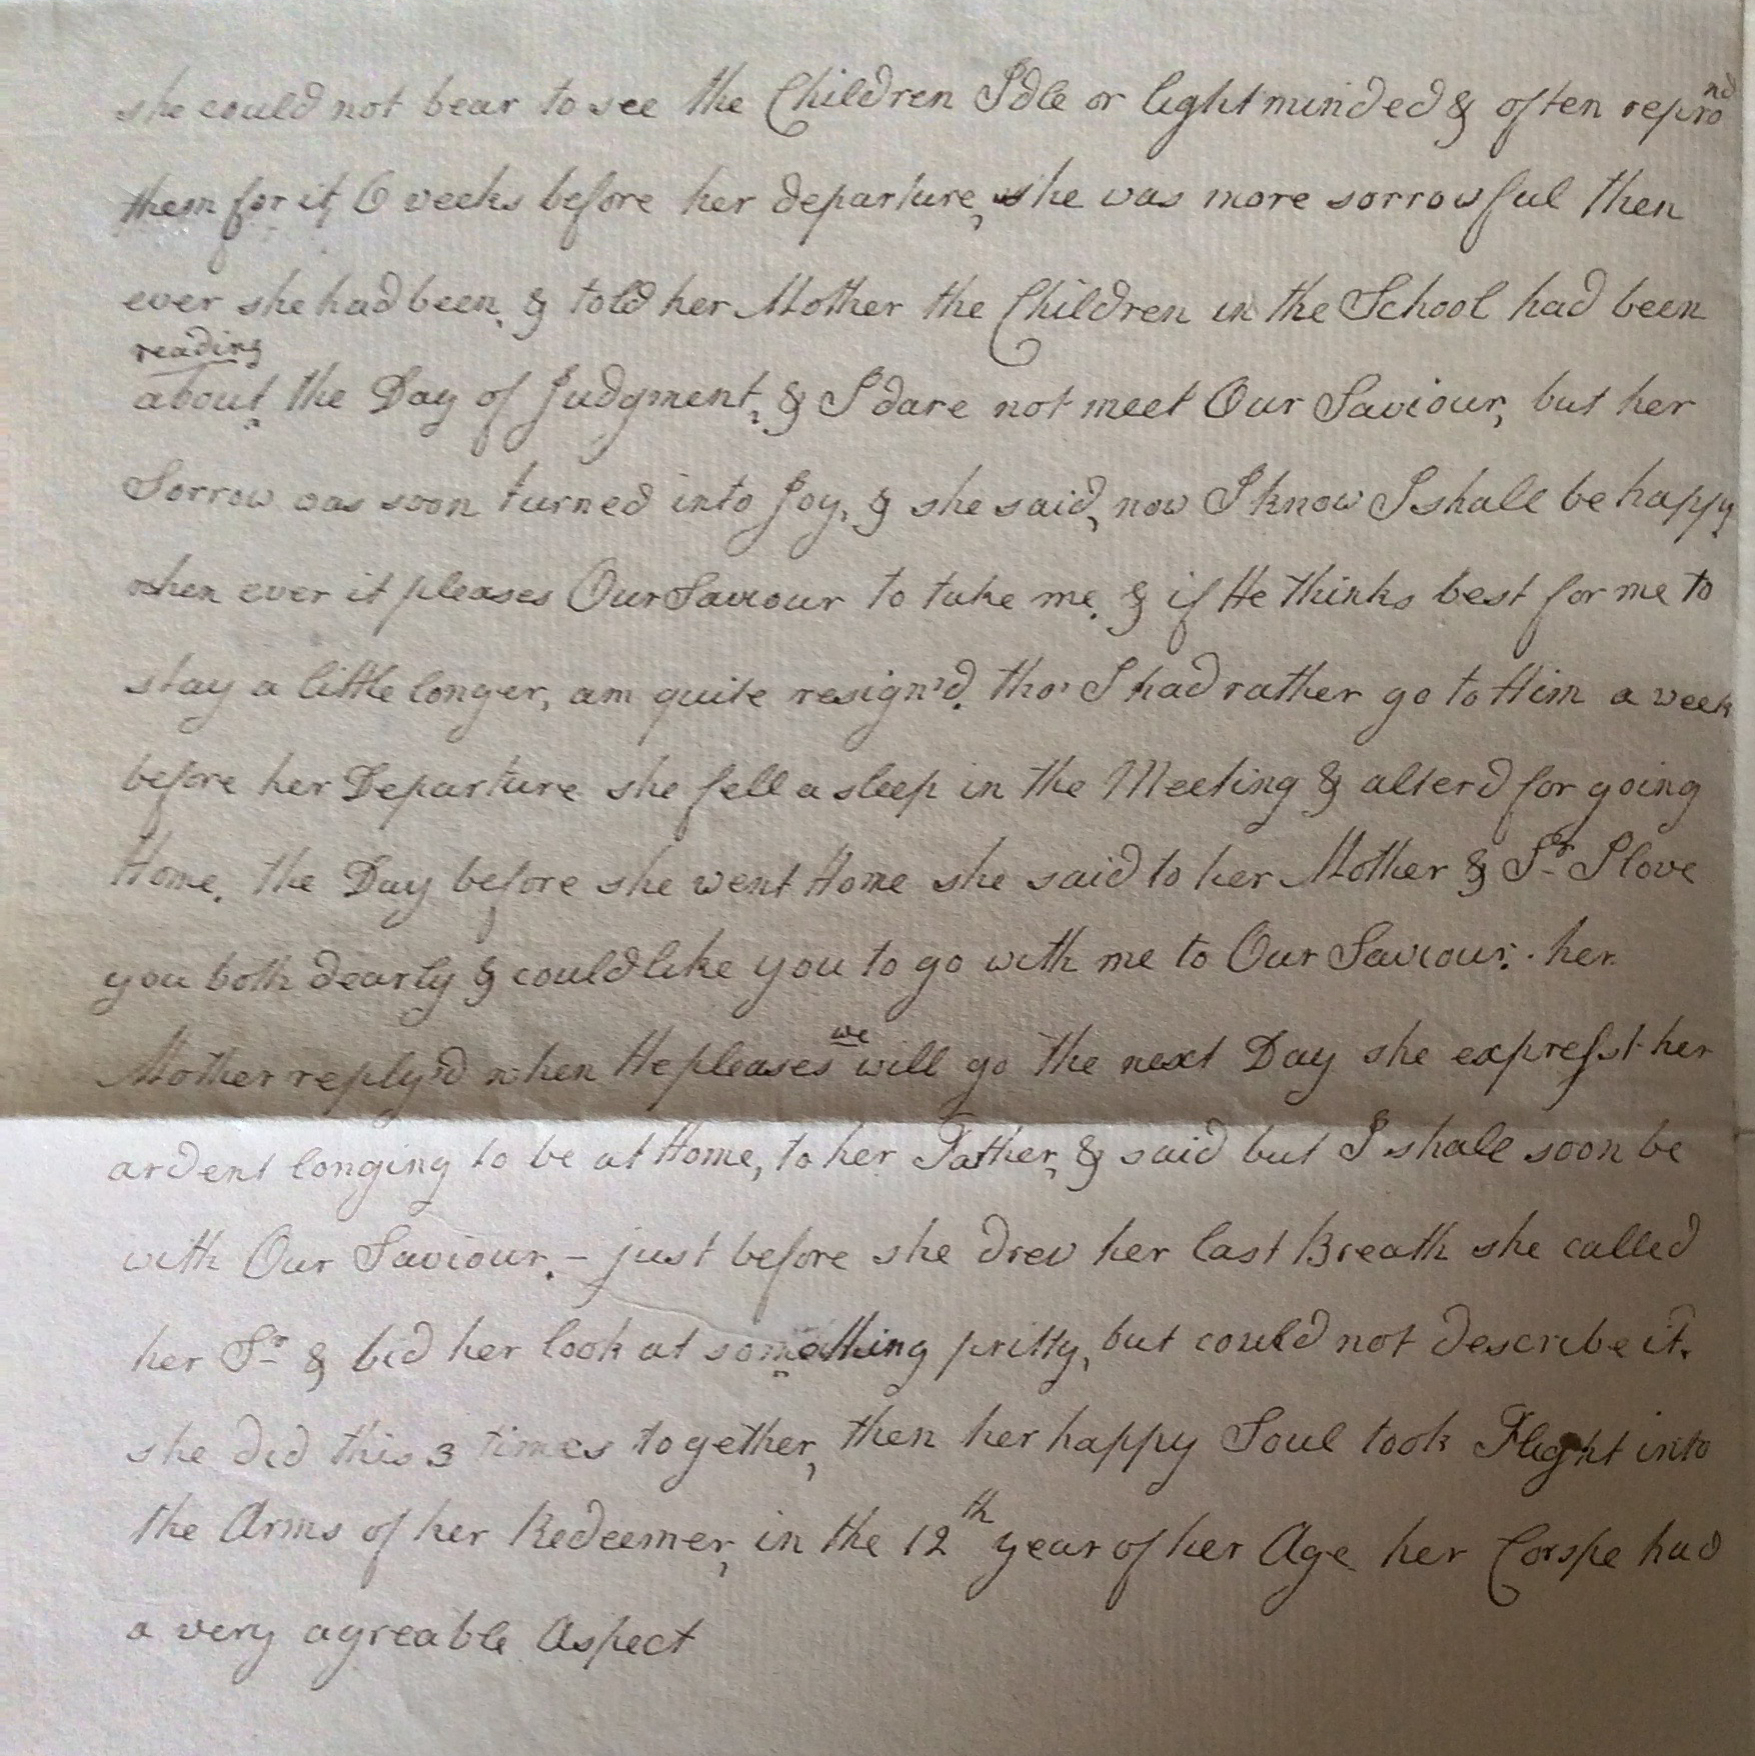 she could not bear to see the Children Idle or light minded & often repro nd
them for it, 6 weeks before her departure, she was more sorrowful then
ever she had been. & told her Mother the Children in the School had been
reading
about, the Day of Judgment, & I dare not meet Our Saviour, but her
Sorrow was soon turned into Joy, & she said, now I know I shall be happy
when ever it pleases Our Saviour to take me. & if He thinks best for me to
stay a little longer, am quite resign'd. tho' I had rather go to Him a week
before her Departure she fell a sleep in the Meeting & alterd for going
Home. the Day before she went Home she said to her Mother & Sr. I love
you both dearly & could like you to go with me to Our Saviour. her
Mother reply'd when He pleases we will go the next Day she exprest her
ardent longing to be at Home, to her Father, & said but I shall soon be
with Our Saviour. - just before she drew her last Breath she called
her Sr. & bid her look at something pritty, but could not describe it.
she did this 3 times together, then her happy Soul took Flight into
the Arms of her Redeemer, in the 12th year of her Age her Corspe had
a very agreable Aspect